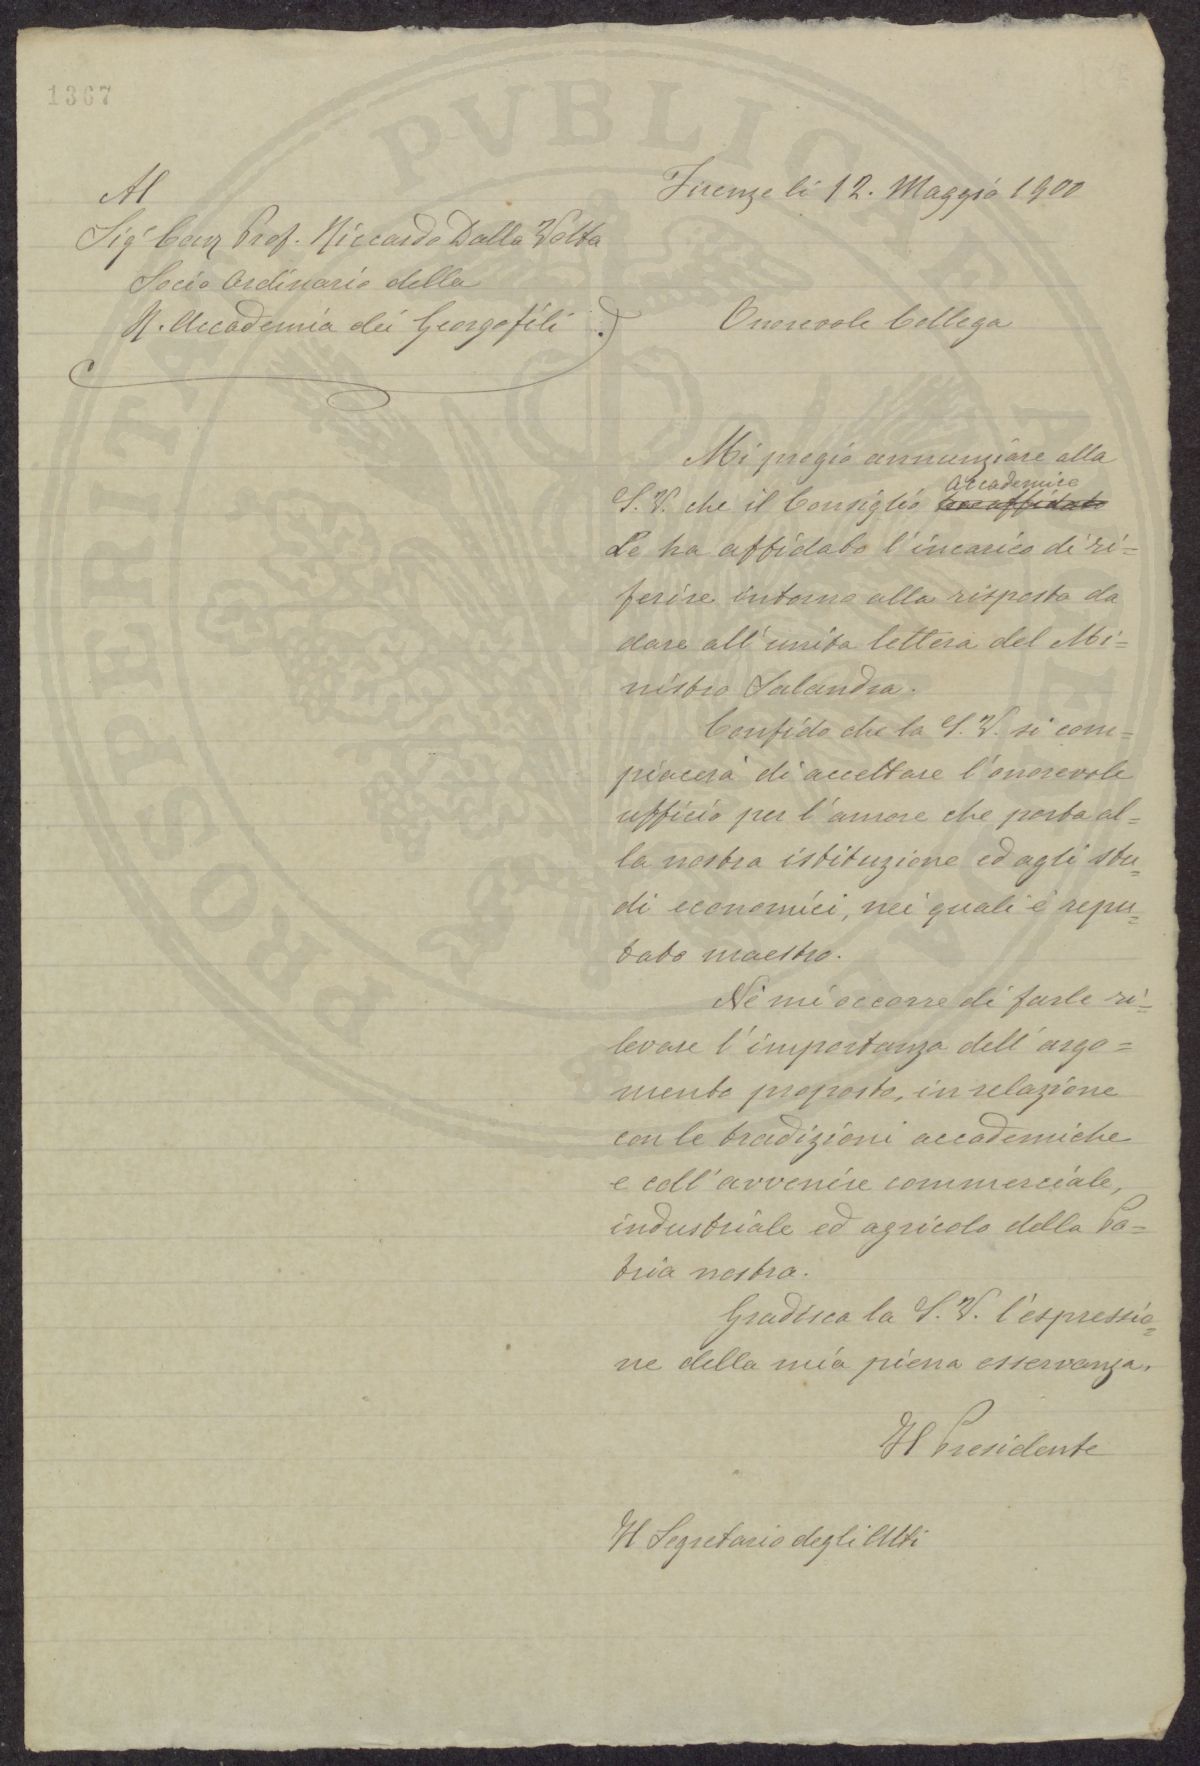 1367
PVBLICAE
PROSPERITATI
AVGENDAE
Al
Sig.r Cav. Prof. Riccardo Dalla Volta
Socio Ordinario della
R. Accademia dei Georgofili
Firenze li 12. Maggio 1900
Onorevole Collega
Mi pregio annunziare alla
Accademico
S. V. che il Consiglio
Le ha affidato l'incarico di ri=
ferire intorno alla risposta da
dare all'unita lettera del Mi=
nistro Salandra.
Confido che la S. V. si com=
piacerà di accettare l'onorevole
ufficio per l'amore che porta al=
la nostra istituzione ed agli stu=
di economici, nei quali è repu=
tato maestro.
Nè mi occorre di farle ri=
levare l'importanza dell'argo=
mento proposto, in relazione
con le tradizioni accademiche
e coll'avvenire commerciale,
industriale ed agricolo della Pa=
tria nostra.
Gradisca la S. V. l'espressio=
ne della mia piena osservanza.
Il Presidente
Il Segretario degli Atti